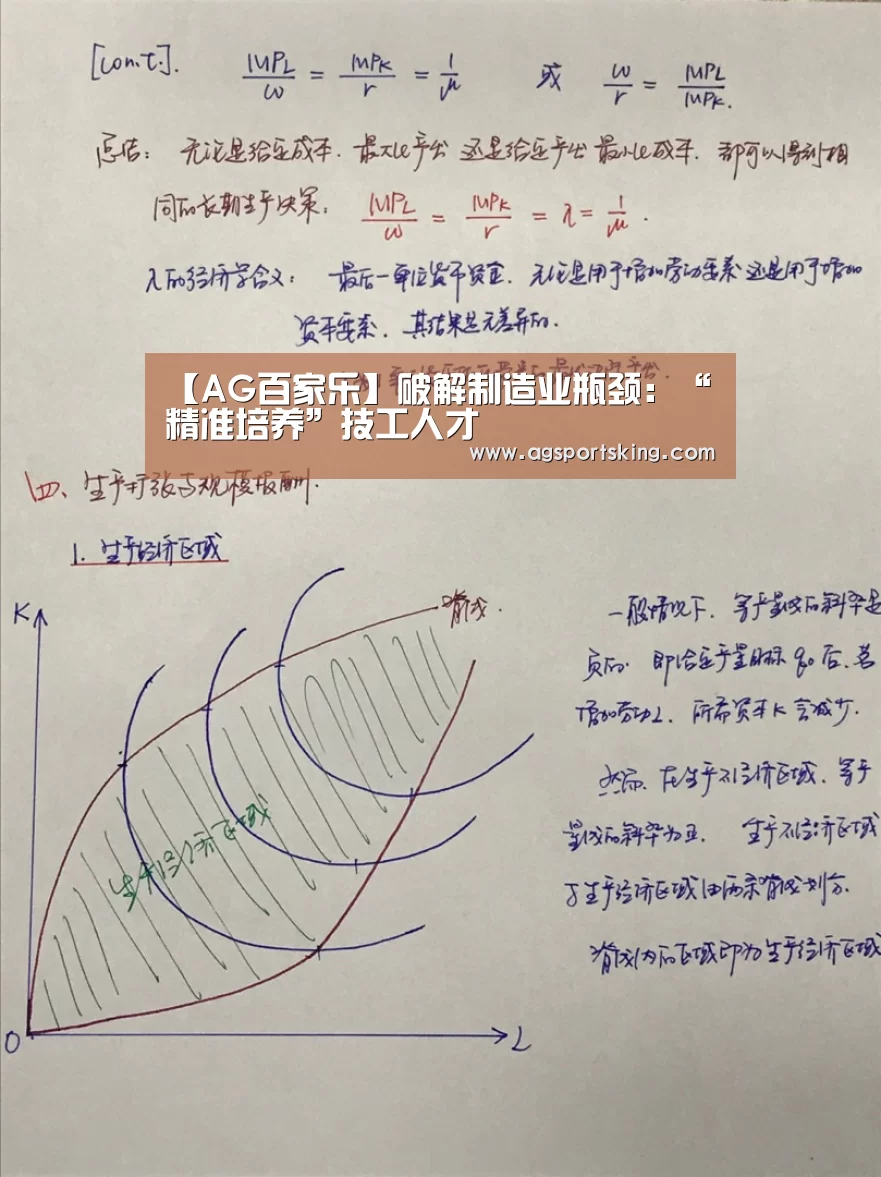 [cont.]. MPL/ω = MPK/r = 1/μ 或 ω/r = MPL/MPK.
总结: 无论是给定成本.最大化产出 还是给定产出 最小化成本. 都可以得到相
同的长期生产决策: MPL/ω = MPK/r = λ = 1/μ.
λ的经济学含义: 最后一单位货币资金. 无论是用于增加劳动要素还是用于增加
资本要素. 其结果是无差异的.
【AG百家乐】破解制造业瓶颈：“
精准培养”技工人才
www.agsportsking.com
四、生产扩张与规模报酬.
1. 生产经济区域
K
脊线.
生产经济区域
O
L
一般情况下. 等产量线的斜率是
负的. 即给定产量目标 q0 后. 若
增加劳动L. 所需资本K会减少.
然而. 在生产不经济区域. 等产
量线的斜率为正. 生产不经济区域
与生产经济区域由两条脊线划分.
脊线内的区域即为生产经济区域